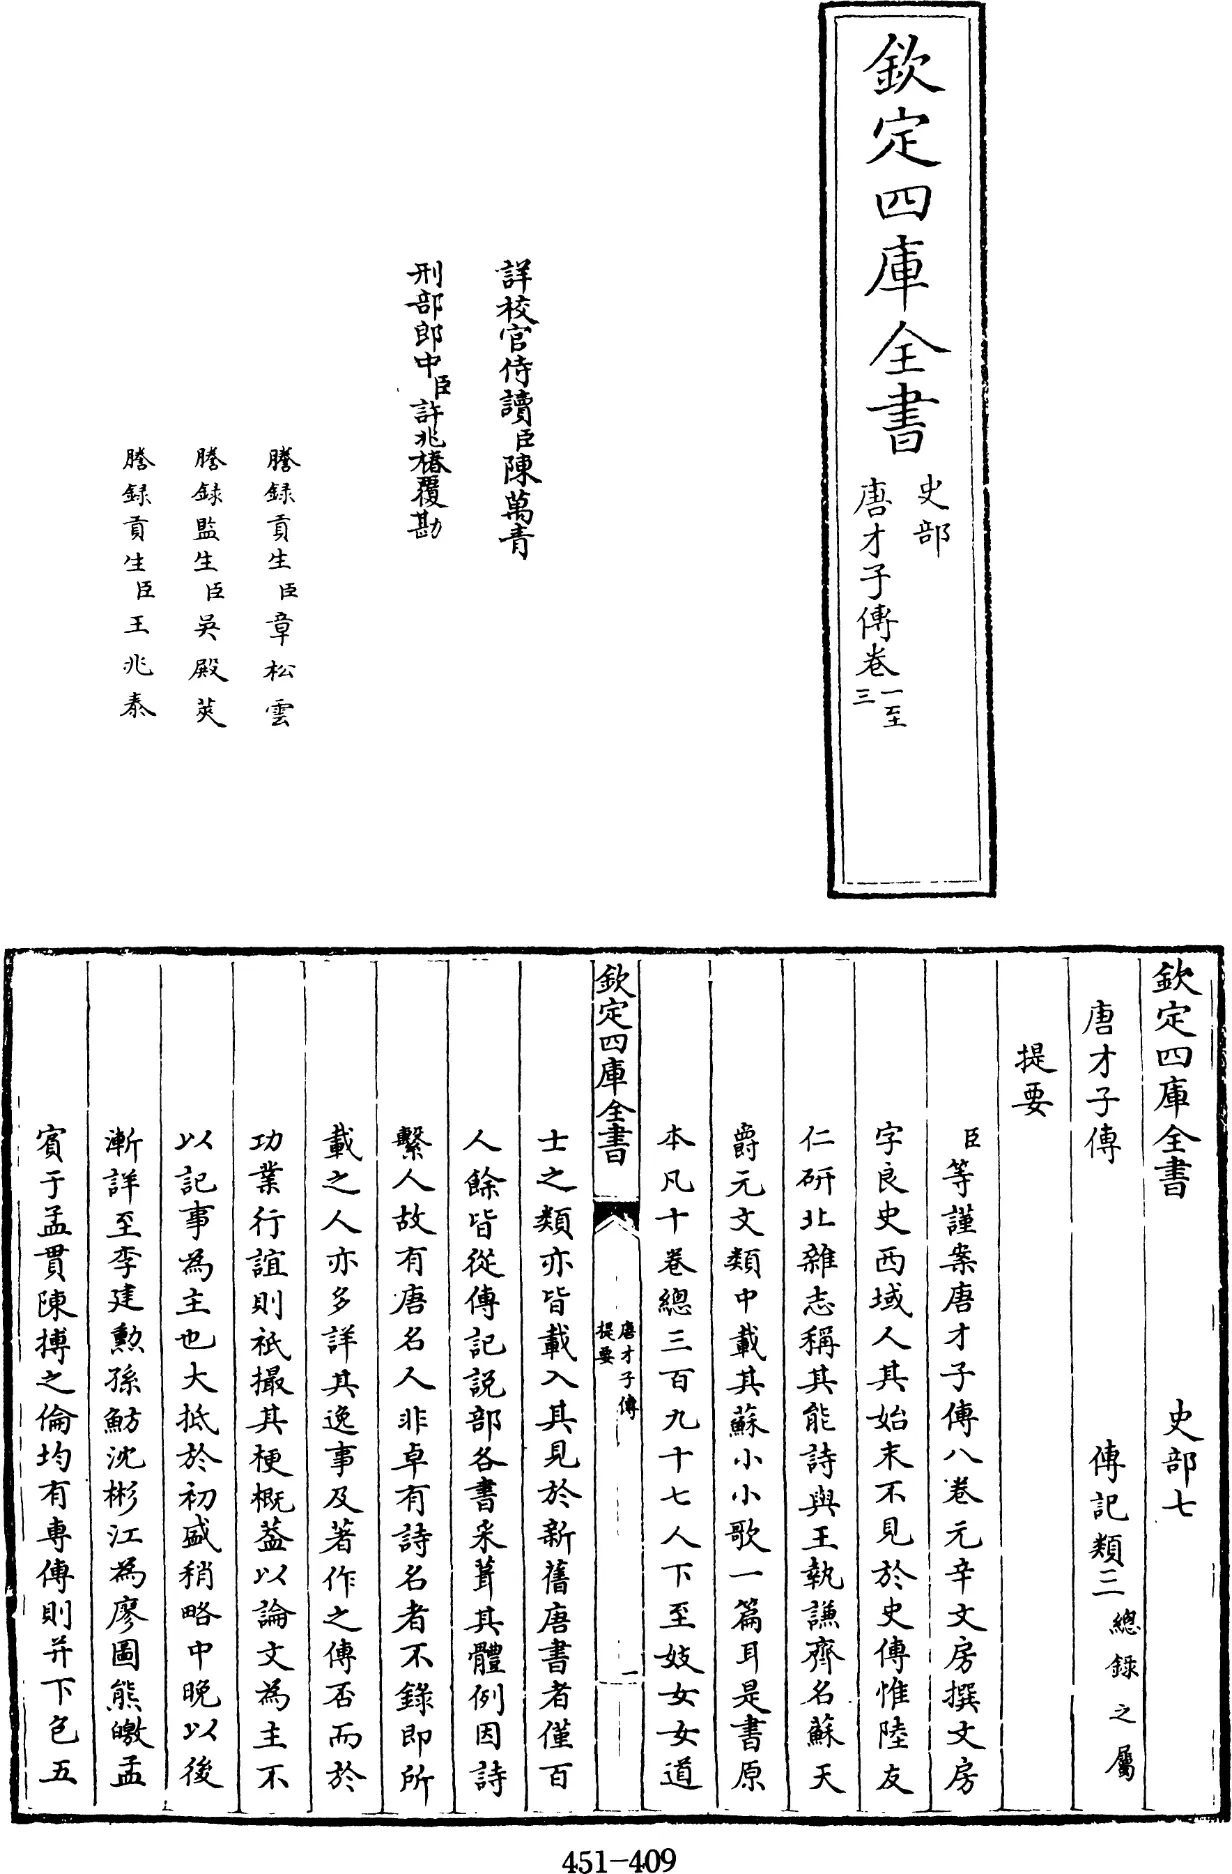 欽定四庫全書
史部
唐才子傳卷一至三
詳校官侍讀臣陳萬青
刑部郎中臣許兆椿覆勘
謄録貢生臣章松雲
謄録監生臣吳殿英
謄録貢生臣王兆泰
欽定四庫全書 史部七
唐才子傳 傳記類三總録之屬
提要
臣等謹案唐才子傳八卷元辛文房撰文房
字良史西域人其始末不見於史傳惟陸友
仁研北雜志稱其能詩與王執謙齊名蘇天
爵元文類中載其蘇小小歌一篇耳是書原
本凡十卷總三百九十七人下至妓女女道
欽定四庫全書
唐才子傳
提要
一
士之類亦皆載入其見於新舊唐書者僅百
人餘皆從傳記説部各書采葺其體例因詩
繫人故有唐名人非卓有詩名者不錄即所
載之人亦多詳其逸事及著作之傳否而於
功業行誼則祇撮其梗概葢以論文為主不
以記事為主也大抵於初盛稍略中晚以後
漸詳至李建勲孫魴沈彬江為廖圖熊皦孟
賔于孟貫陳摶之倫均有專傳則并下包五
451-409